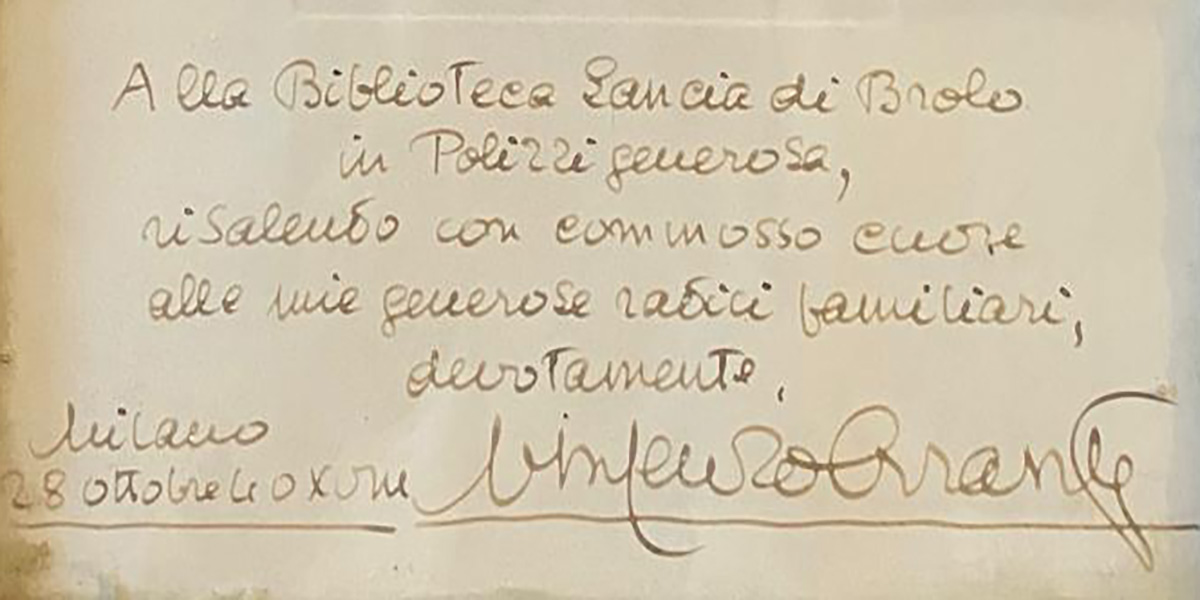 Alla Biblioteca Lancia di Brolo
in Polizzi generosa,
risalendo con commosso cuore
alle mie generose radici familiari,
devotamente,
Milano
28 ottobre 40 XVIII
Vincenzo Errante